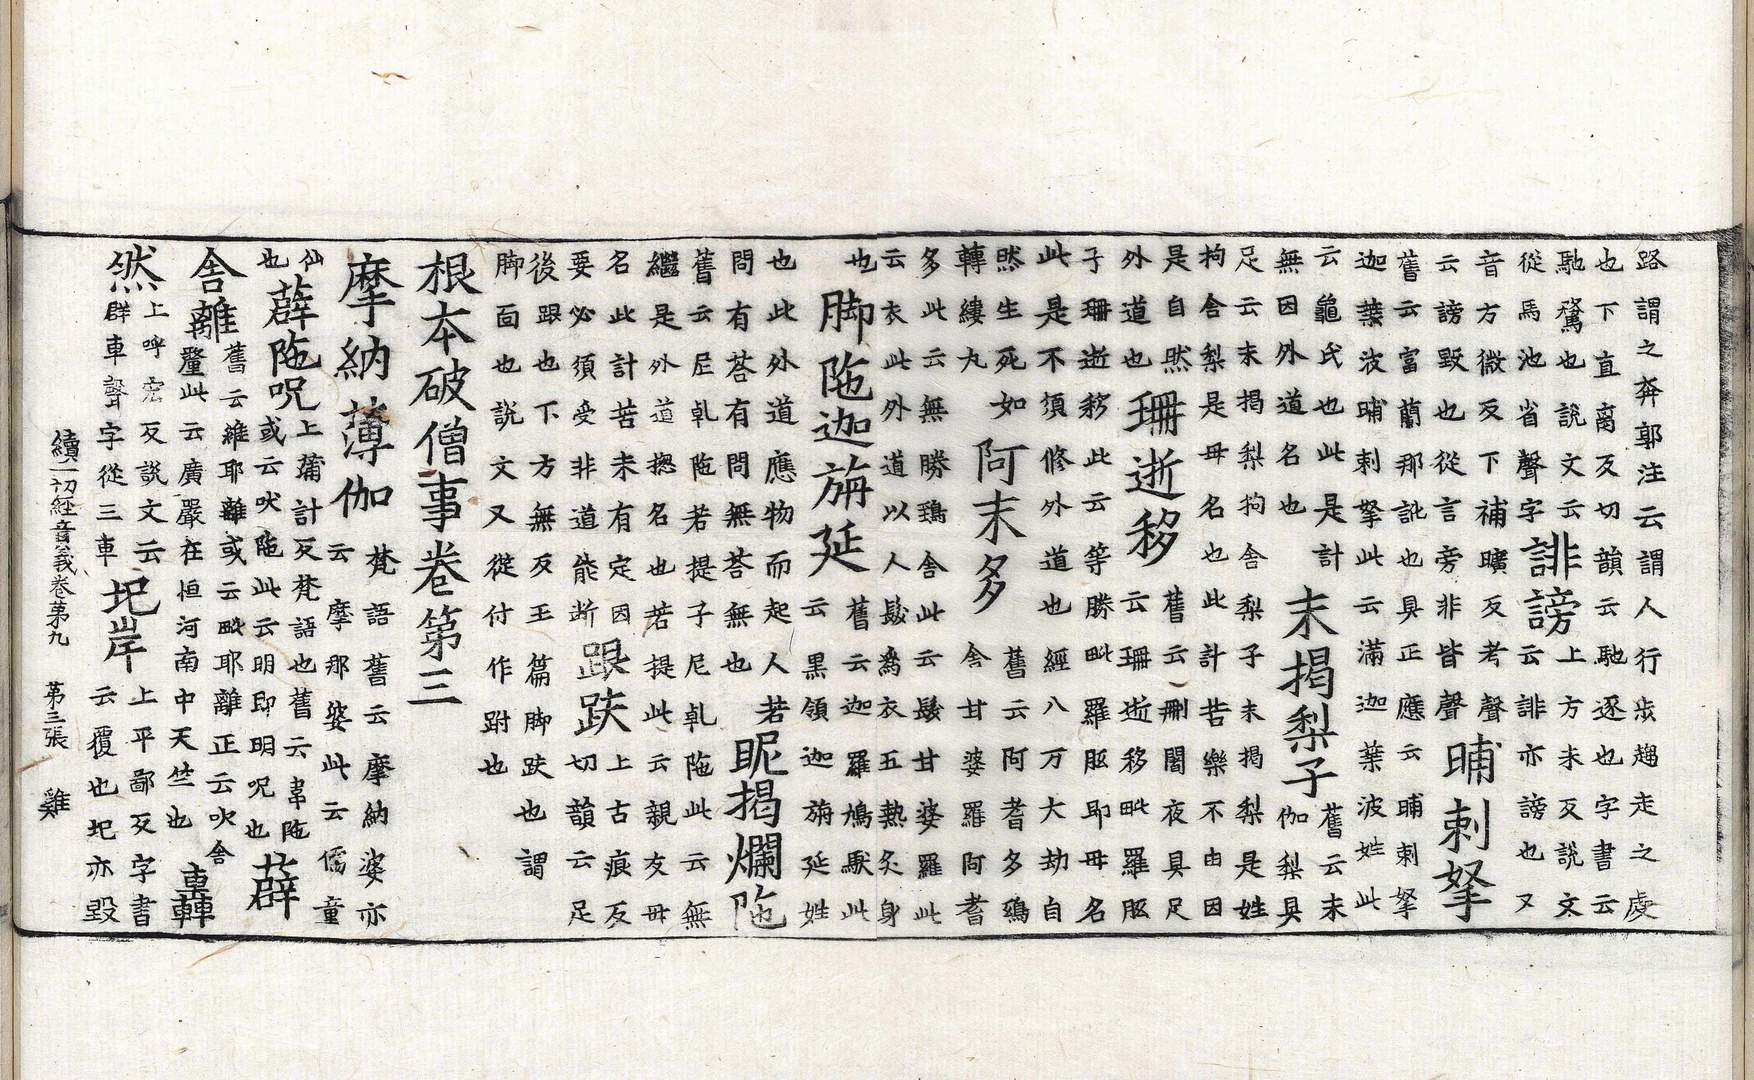 路謂之奔郭注云謂人行步趨走之處
也下直离反切韻云馳逐也字書云
馳騖也說文云
從馬池省聲字
誹謗
上方未反說文
云誹亦謗也又
音方微反下補曠反考聲
云謗毀也從言旁非皆聲
晡剌拏
舊云富蘭那訛也具正應云晡剌拏
迦葉波晡剌拏此云滿迦葉波姓此
云龜氏也此是計
無因外道名也
末揭梨子
舊云末
伽梨具
足云末揭梨拘舍梨子末揭梨是姓
拘舍梨是母名也此計苦樂不由因
是自然
外道也
珊逝移
舊云刪闍夜具足
云珊逝移毗羅胝
子珊逝移此云等勝毗羅胝耶母名
此是不須修外道也經八万大劫自
然生死如
轉縷丸
阿末多
舊云阿耆多鵄
舍甘婆羅阿耆
多此云無勝鵄舍此云髮甘婆羅此
云衣此外道以人髮為衣五熱炙身
也
脚陁迦旃延
舊云迦羅鳩馱此
云黑領迦旃延姓
也此外道應物而起人若
問有荅有問無荅無也
昵揭爛陁
舊云尼乹陁若提子尼乹陁此云無
繼是外道揔名也若提此云親友母
名此計苦未有定因
要必須受非道能断
跟趺
上古痕反
切韻云足
後跟也下方無反王篇脚趺也謂
脚面也說文又從付作跗也
根本破僧事卷第三
摩納薄伽
梵語舊云摩納婆亦
云摩那婆此云儒童
仙
也
薜陁呪
上蒲計反梵語也舊云韋陁
或云吠陁此云明即明呪也
薜
舍離
舊云維耶離或云毗耶離正云吠舍
釐此云廣嚴在恒河南中天竺也
轟
然
上呼宏反說文云
群車聲字從三車
圯岸
上平鄙反字書
云覆也圯亦毀
續一切經音義卷第九 第三張 雞